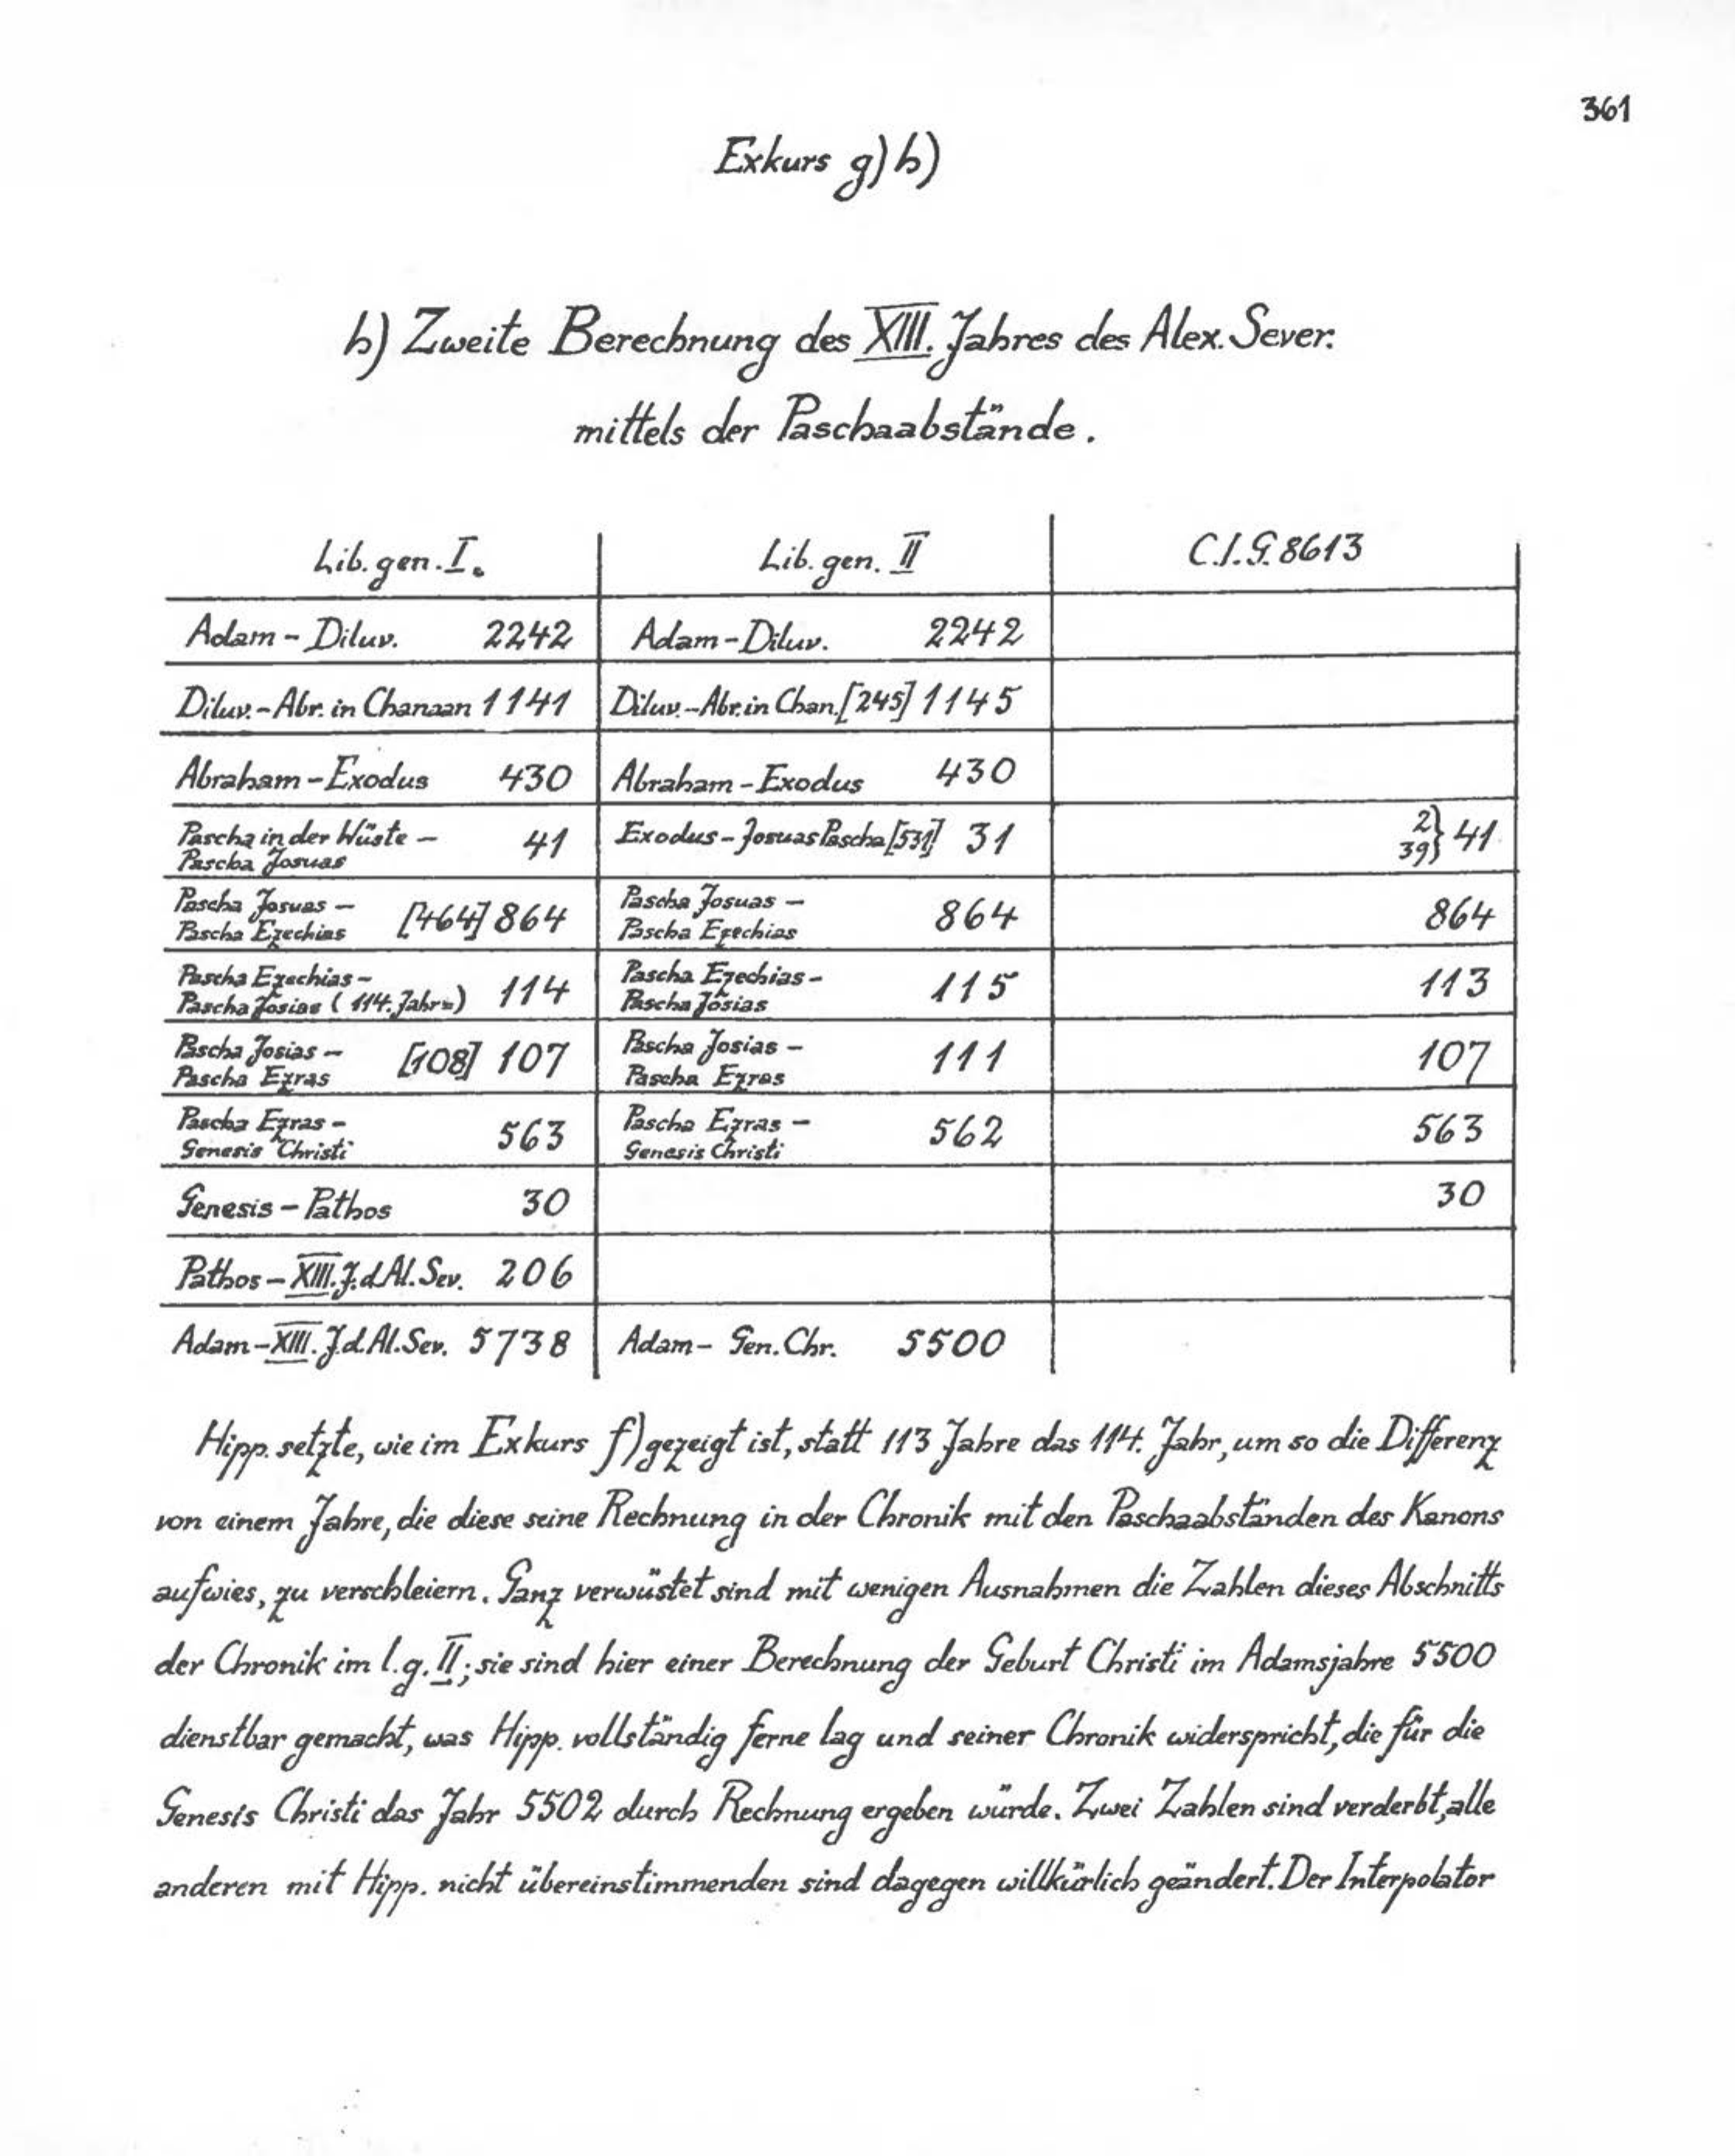 361
Exkurs g) h)
h) Zweite Berechnung des XIII. Jahres des Alex. Sever.
mittels der Paschaabstände.
Lib. gen. I. Lib. gen. II C.I.G. 8613
Adam - Diluv. 2242 Adam - Diluv. 2242
Diluv. - Abr. in Chanaan 1141 Diluv. - Abr. in Chan. [245] 1145
Abraham - Exodus 430 Abraham - Exodus 430
Pascha in der Wüste - Pascha Josuas 41 Exodus - Josuas Pascha [531] 31 2 39} 41
Pascha Josuas - Pascha Ezechias [464] 864 Pascha Josuas - Pascha Ezechias 864 864
Pascha Ezechias - Pascha Josias (114. Jahr=) 114 Pascha Ezechias - Pascha Josias 115 113
Pascha Josias - Pascha Ezras [108] 107 Pascha Josias - Pascha Ezras 111 107
Pascha Ezras - Genesis Christi 563 Pascha Ezras - Genesis Christi 562 563
Genesis - Pathos 30 30
Pathos - XIII. J. d. Al. Sev. 206
Adam - XIII. J. d. Al. Sev. 5738 Adam - Gen. Chr. 5500
Hipp. setzte, wie im Exkurs f) gezeigt ist, statt 113 Jahre das 114. Jahr, um so die Differenz
von einem Jahre, die diese seine Rechnung in der Chronik mit den Paschaabständen des Kanons
aufwies, zu verschleiern. Ganz verwüstet sind mit wenigen Ausnahmen die Zahlen dieses Abschnitts
der Chronik im l. g. II; sie sind hier einer Berechnung der Geburt Christi im Adamsjahre 5500
dienstbar gemacht, was Hipp. vollständig ferne lag und seiner Chronik widerspricht, die für die
Genesis Christi das Jahr 5502 durch Rechnung ergeben würde. Zwei Zahlen sind verderbt, alle
anderen mit Hipp. nicht übereinstimmenden sind dagegen willkürlich geändert. Der Interpolator